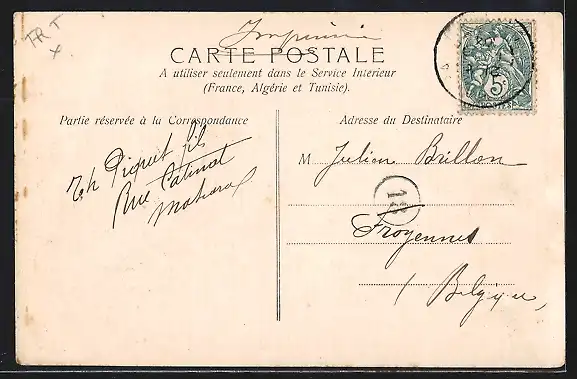 FR T
x
Imprimé
CARTE POSTALE
A utiliser seulement dans le Service Intérieur
(France, Algérie et Tunisie).
Partie réservée à la Correspondance
Th Piquet fils
Rue Catinat
Adresse du Destinataire
M Julien Brillon
18
Froyennes
(Belgique)
5